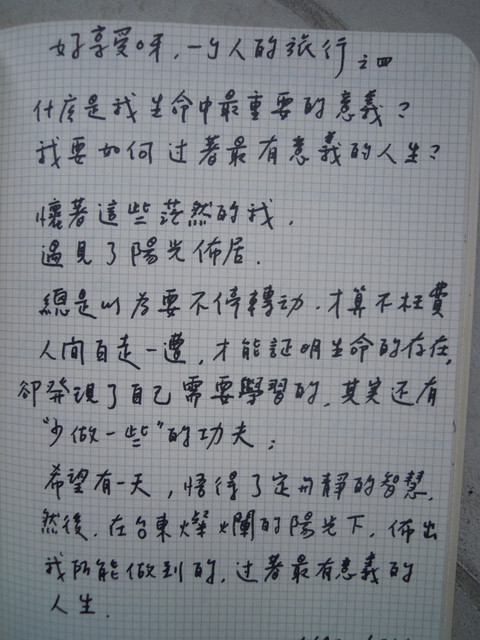 好享受呀,一个人的旅行 之四
什庅是我生命中最重要的意義?
我要如何过著最有意義的人生?
懷著這些茫然的我,
遇見了陽光佈居.
總是以為要不停轉动.才算不枉費
人间自走一遭,才能証明生命的存在,
卻発現了自己需要學習的,其实还有
"少做一些"的功夫;
希望有一天,悟得了定与靜的智慧.
然後.在台東燦爛的陽光下.佈出
我所能做到的.过著最有意義的
人生.